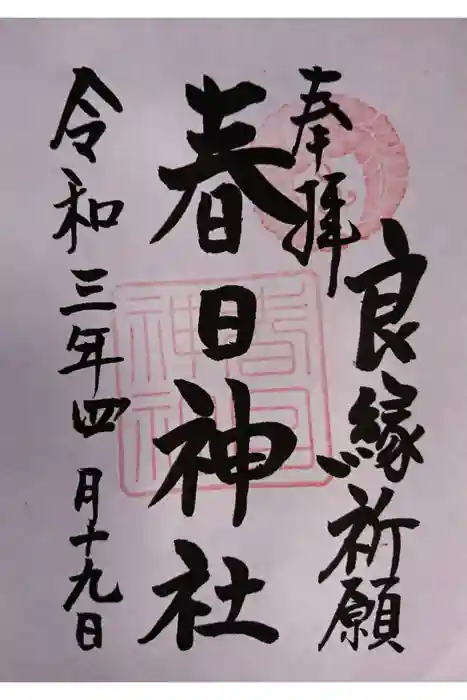 奉拝
良縁祈願
春日神社
春日
神社
令和三年四月十九日